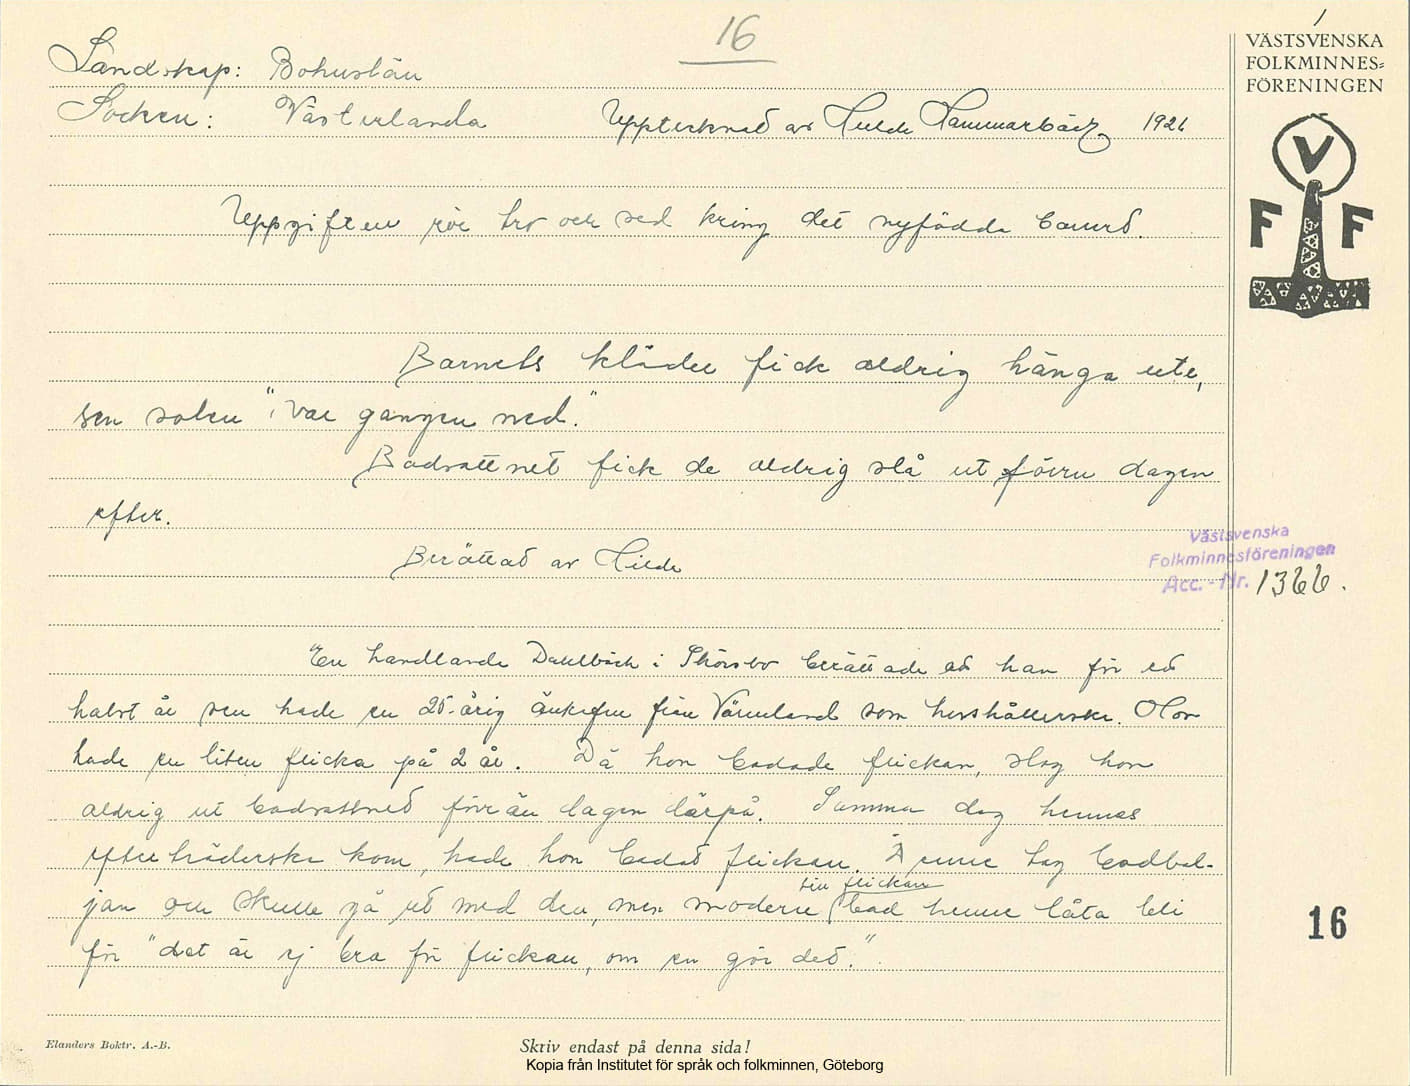 16
1
VÄSTSVENSKA
FOLKMINNES=
FÖRENINGEN
Landskap: Bohuslän
Socken: Västerlanda Upptecknad av Hulda Hammarbäck 1926
V
F F
Uppgiften rör tro och sed kring det nyfödda barnet.
Barnets kläder fick aldrig hänga ute,
sen solen "i var gången ned."
Badvattnet fick de aldrig slå ut förrn dagen
efter.
Berättat av Hilda
Västsvenska
Folkminnesföreningen
Acc. - Nr. 1366.
En handlande Dahlbäck i berättade att han för ett
halvt år sen hade en 25-årig änkefru från Värmland som hushållerska. Hon
hade en liten flicka på 2 år. Då hon badade flickan, slog hon
aldrig ut badvattnet förrän dagen därpå. Samma dag hennes
efterträderska kom, hade hon badat flickan. Denne tog badbal-
jan och skulle gå ut med den, men modern till flickan bad henne låta bli
för "det är ej bra för flickan, om en gör det."
16
Elanders Boktr. A.-B.
Skriv endast på denna sida!
Kopia från Institutet för språk och folkminnen, Göteborg